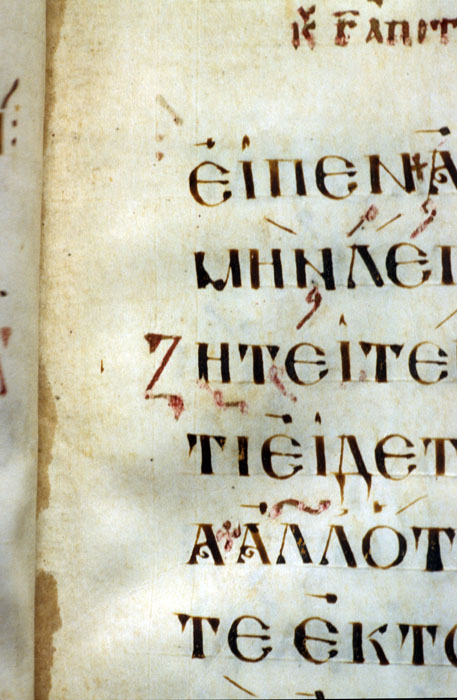 ΑΠΟΤ
ΕΙΠΕΝ+Α
ΜΗΝΛΕΓ
ΖΗΤΕΙΤΕ
ΤΙΕΙΔΕΤ
Α+ΑΛΛΟΤ
ΤΕΕΚΤΩ